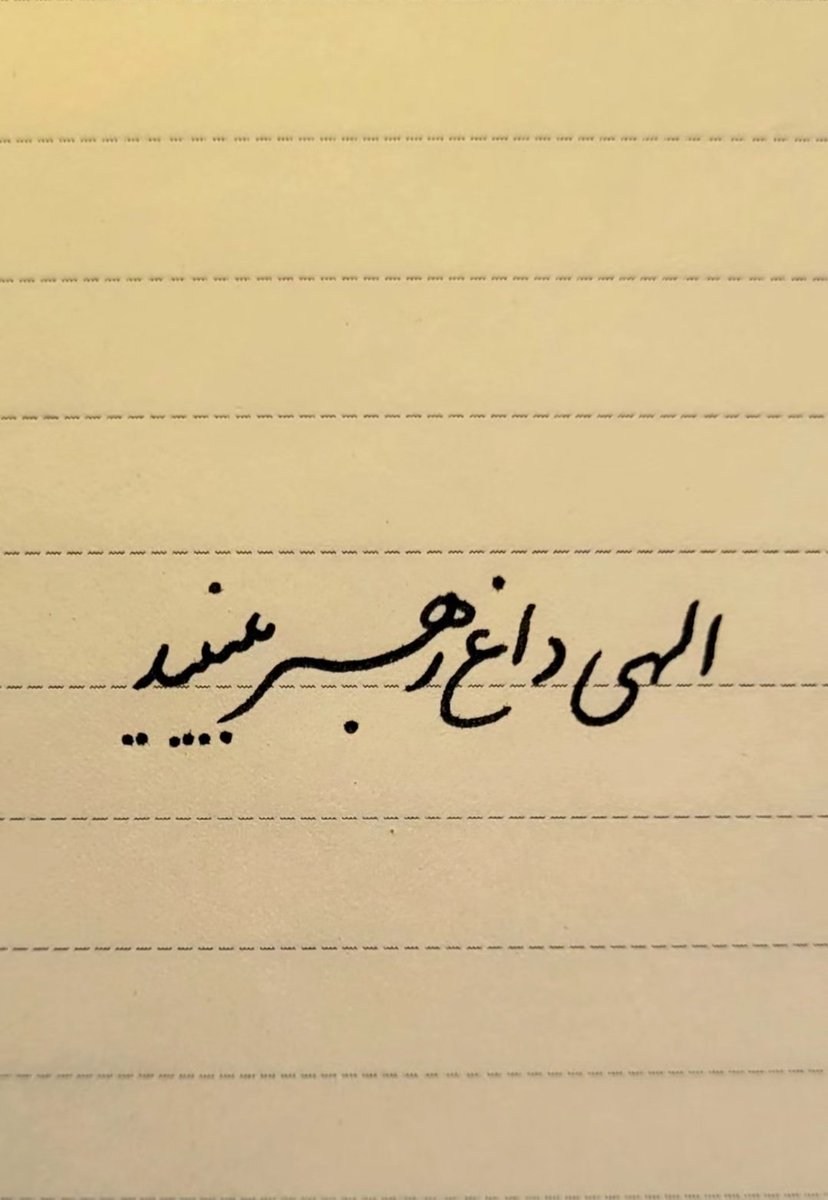 الهی داغ رهبر ببینید